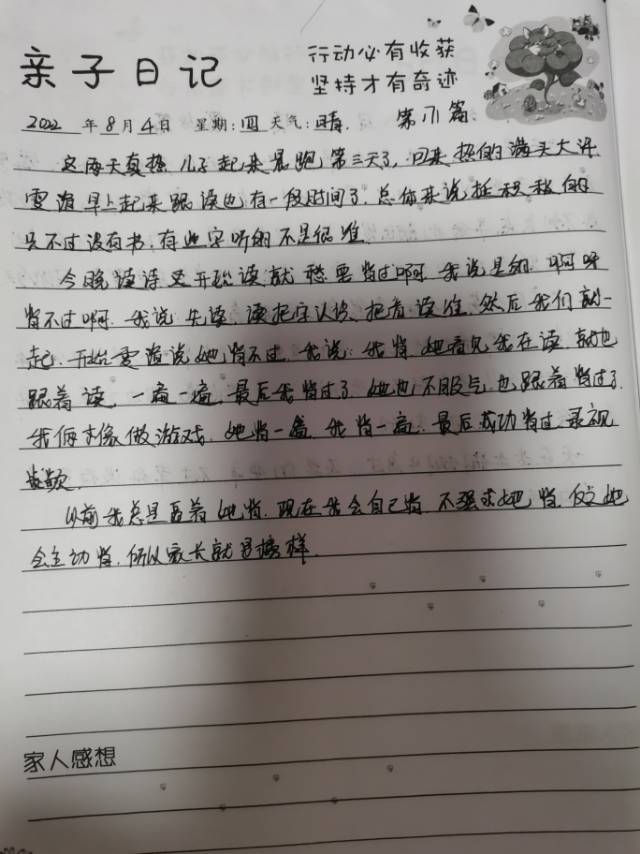 亲子日记
行动必有收获
坚持才有奇迹
2022年8月4日 星期:四 天气:晴. 第171篇
这两天真热 儿子起来晨跑 第三天了, 回来热的满头大汗
雯海早上起来跟读也有一段时间了, 总体来说挺积极的
只不过没有书, 有些字听的不是很准
今晚读 开始读就 要背过啊 我说是的. 啊呀
背不过啊. 我说先读, 读把字认识, 把音读准, 然后我们就一
起, 开始雯海说她背不过, 我说: 我背, 她看见我在读, 就也
跟着读, 一遍一遍, 最后我背过了, 她也不服气, 也跟着背过了.
我俩才像做游戏, 她背一遍, 我背一遍, 最后成功背过, 录视
频
以前我总是盯着她背, 现在我会自己背, 不强求她背, 反之她
会主动背, 所以家长就是榜样.
家人感想